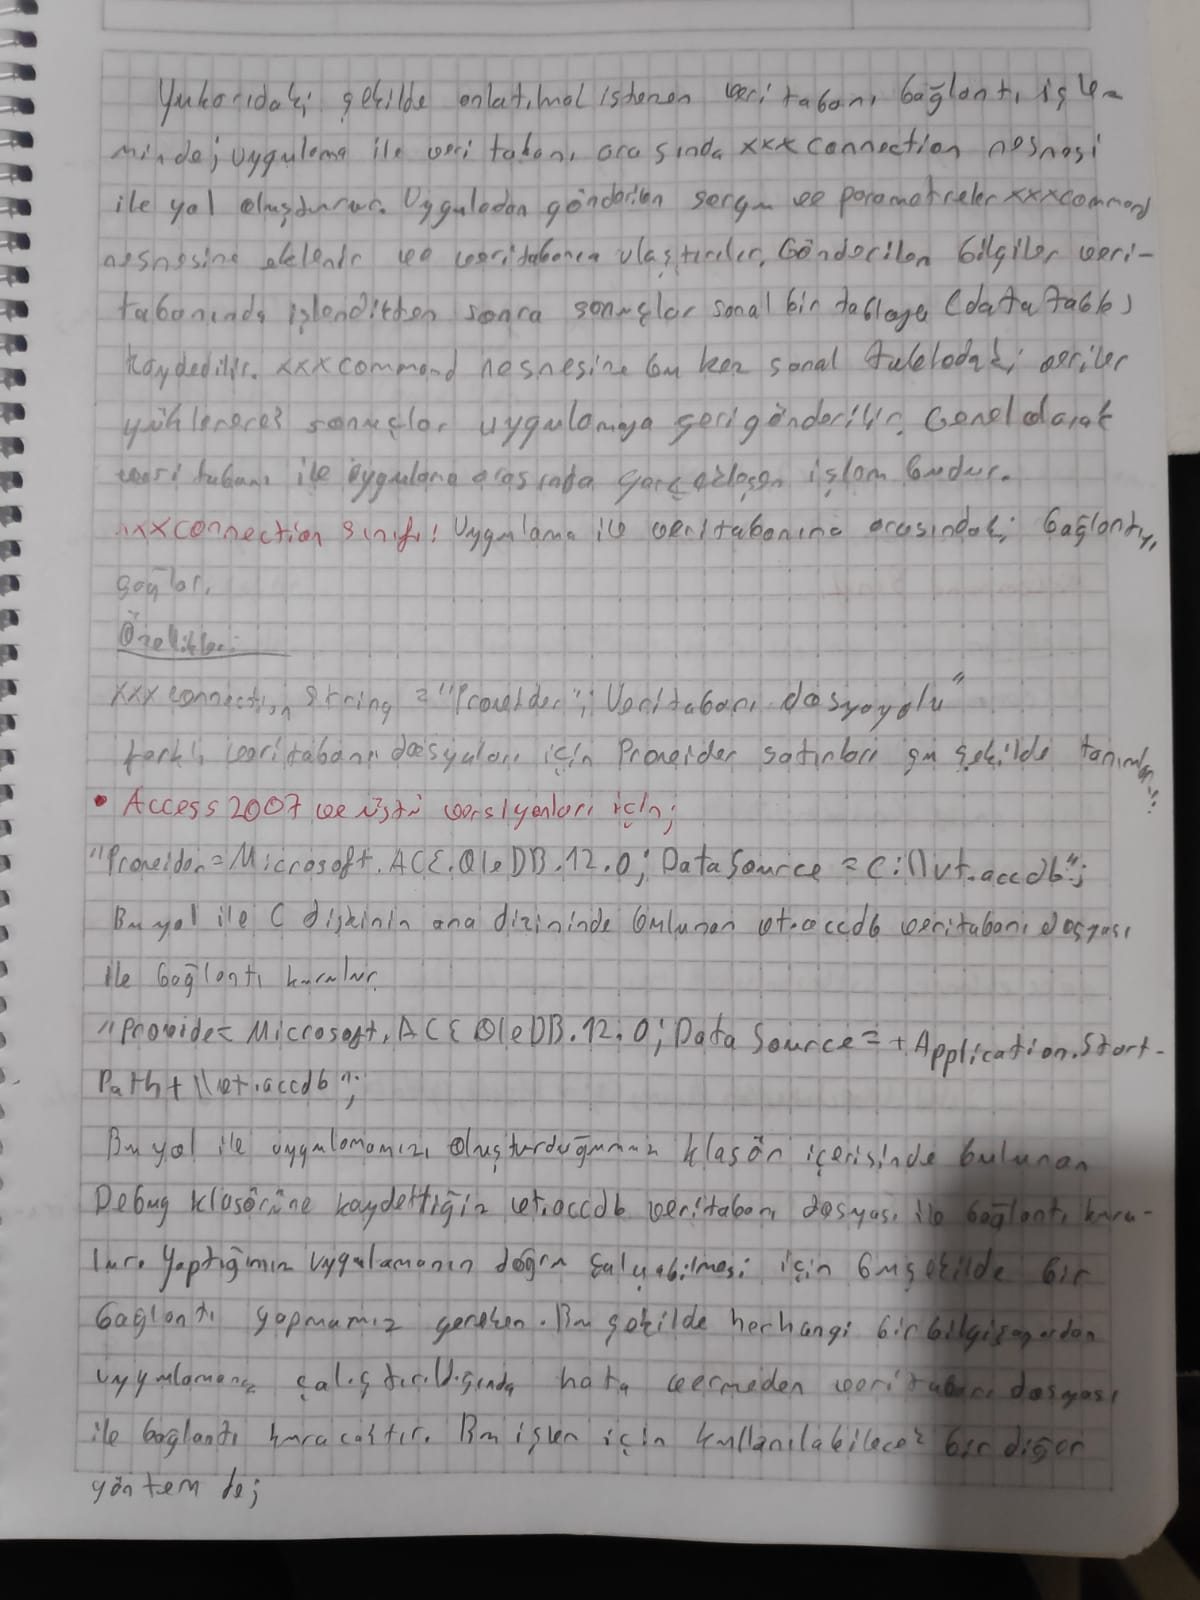 Yukarıdaki şekilde anlatılmak istenen veri tabanı bağlantı işle-
minde; uygulama ile veri tabanı arasında xxxconnection nesnesi
ile yol oluşturur. Uyguladan gönderilen sorgu ve parametreler xxxcommand
nesnesine eklenir ve veritabanına ulaştırılır. Gönderilen bilgiler veri-
tabanında işlendikten sonra sonuçlar sanal bir tabloya (data table)
kaydedilir. xxxcommand nesnesine bu kez sanal veriler
yüklenerek sonuçlar uygulamaya geri gönderilir. Genel olarak
veri tabanı ile uygulama arasında gerçekleşen işlem budur.
xxxconnection sınıfı: Uygulama ile veritabanına arasındaki bağlantıyı
sağlar.
Özellikler:
xxx connection string = "Provider"; Veritabanı dosyayolu"
farklı veritabanı dosyaları için Provider satırları şu şekilde tanımlanır:
• Access 2007 ve üstü versiyonları için;
"Provider=Microsoft.ACE.OleDB.12.0; Data Source = C:\\vt.accdb";
Bu yol ile C diskinin ana dizininde bulunan vt.accdb veritabanı dosyası
ile bağlantı kurulur.
"Provide= Microsoft.ACE OleDB.12.0; Data Source= + Application.Start-
Path + \\vt.accdb";
Bu yol ile uygulamamızı oluşturduğumuz klasör içerisinde bulunan
Debug klasörüne kaydettiğiz vt.accdb veritabanı dosyası ile bağlantı kuru-
lur. Yaptığımız uygulamanın doğru çalışabilmesi için bu şekilde bir
bağlantı yapmamız gereken. Bu şekilde herhangi bir bilgisayardan
uygulamanız çalıştırıldığında hata vermeden veri tabanı dosyası
ile bağlantı kuracaktır. Bu işlem için kullanılabilecek bir diğer
yöntem de;